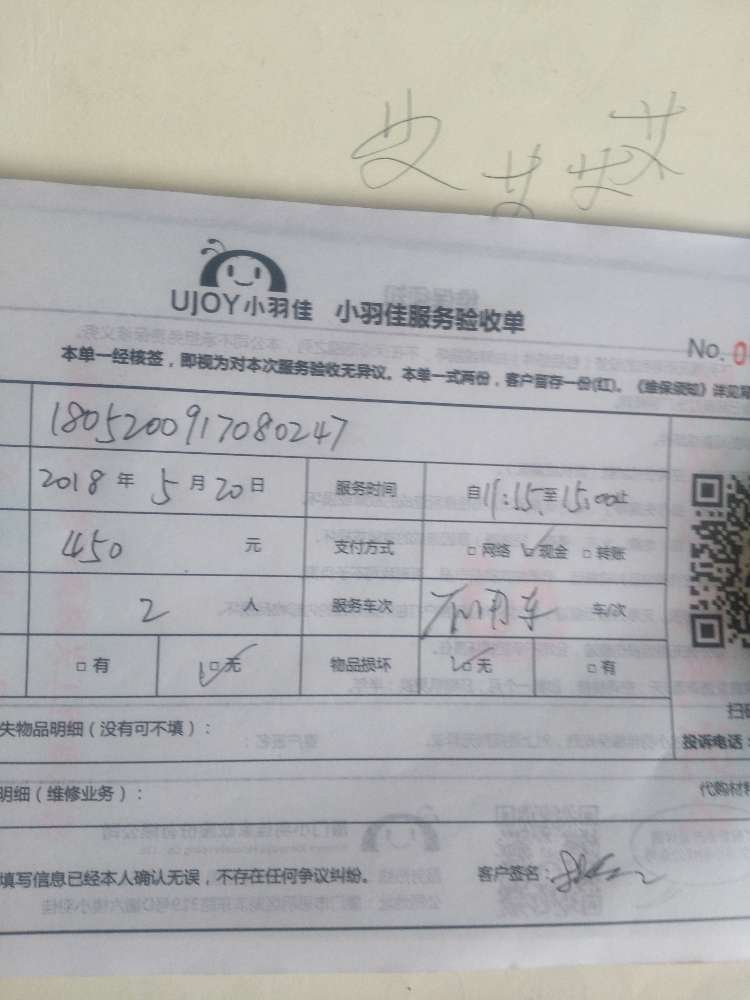 UJOY小羽佳 小羽佳服务验收单
No. 0
本单一经核签，即视为对本次服务验收无异议。本单一式两份，客户留存一份(红)。《维保须知》详见
1805200917080247
2018 年 5 月 20 日 服务时间 自 11:15 至 15:00 止
450 元 支付方式 □ 网络 ☑ 现金 □ 转账
2 人 服务车次 不用车 车/次
□ 有 ☑ 无 物品损坏 ☑ 无 □ 有
失物品明细（没有可不填）：
扫码
投诉电话：
明细（维修业务）：
代购材料
填写信息已经本人确认无误，不存在任何争议纠纷。 客户签名：